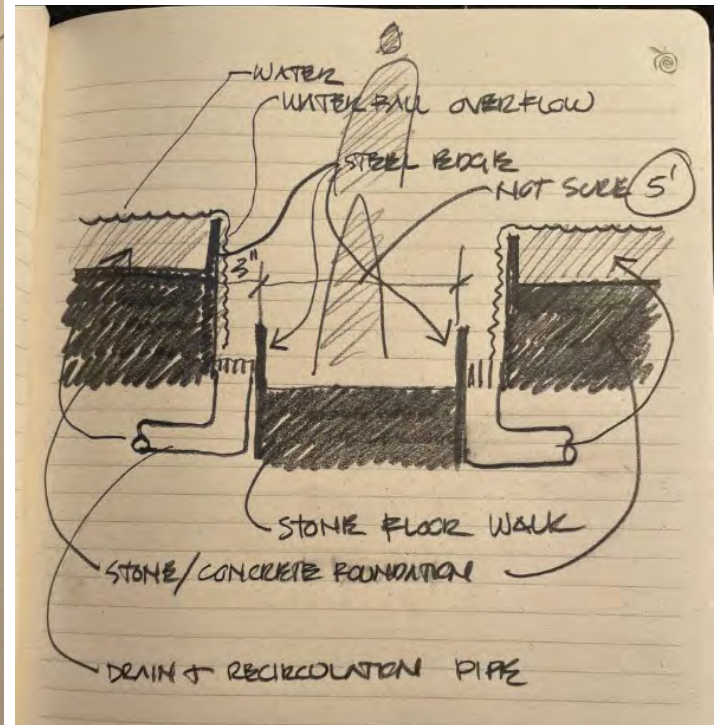 WATER
WATER FALL OVERFLOW
STEEL EDGE
NOT SURE 5'
3"
STONE FLOOR WALK
STONE/CONCRETE FOUNDATION
DRAIN + RECIRCULATION PIPE